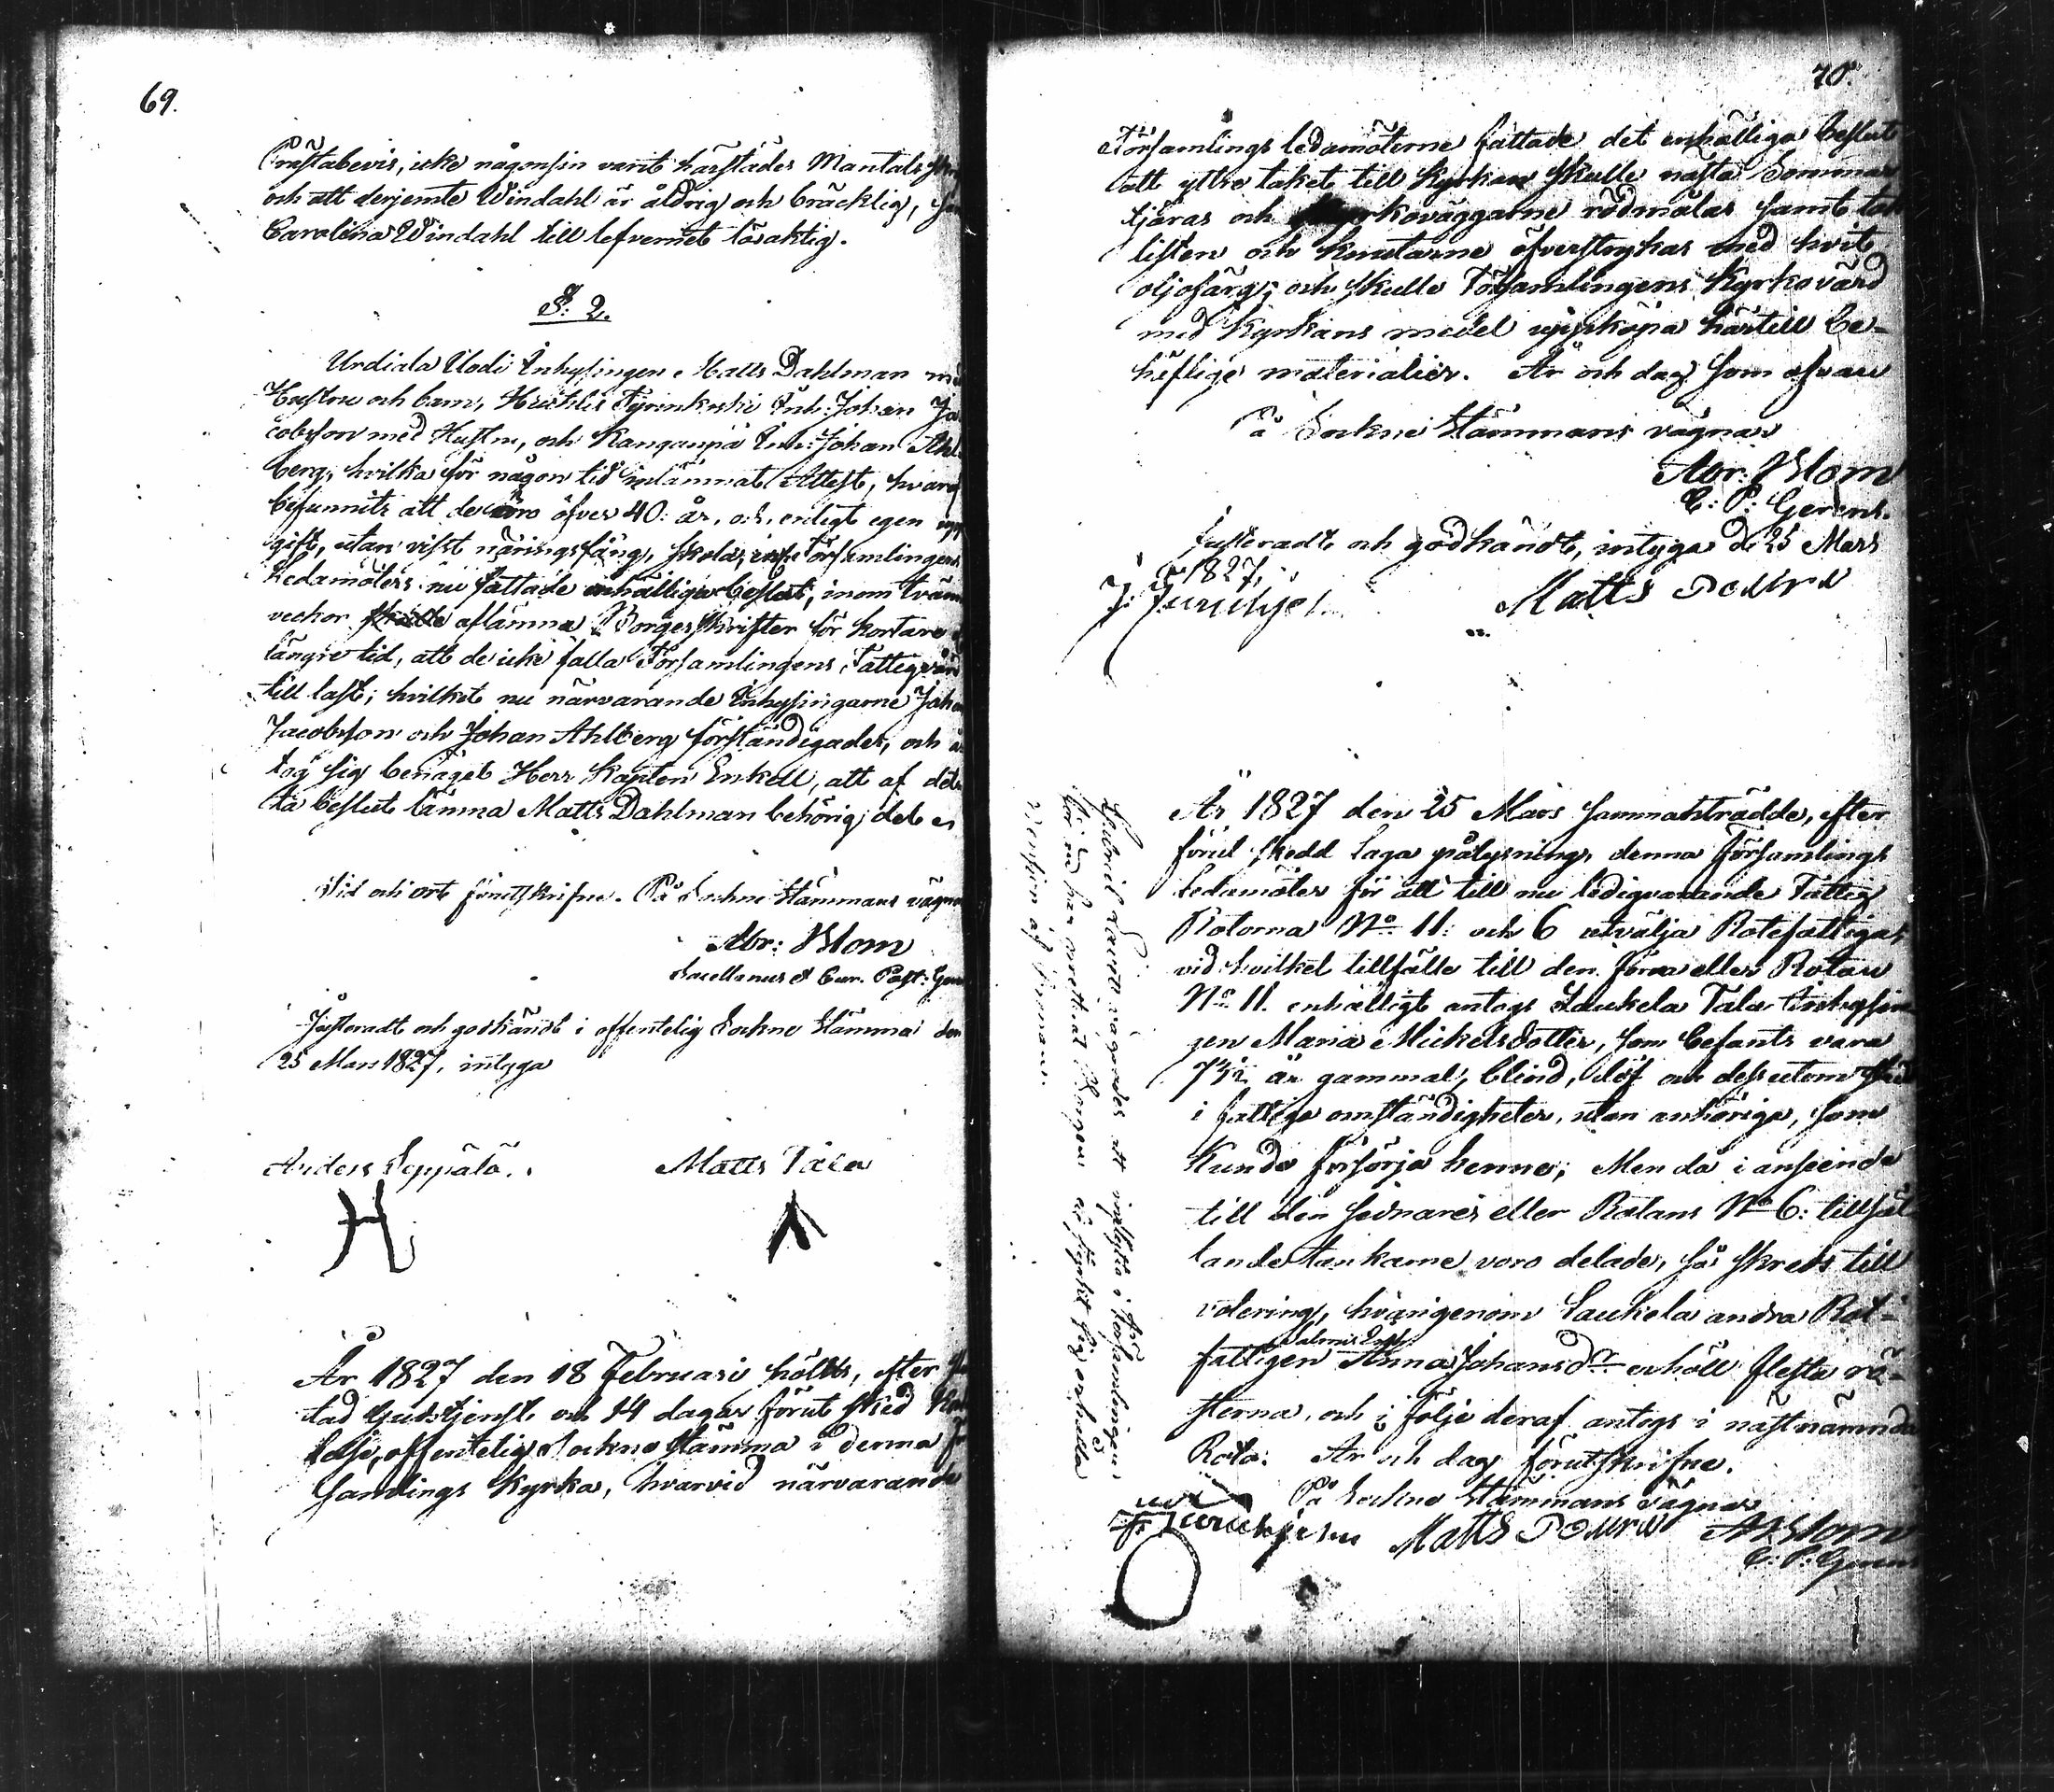 69.
Prästabevis, icke någonsin varit härstädes Mantals
och att derjemte Windahl är åldrig och bräcklig,
Carolina Windahl till lefvernet lösaktig.
§: 2.
Urdiala Uodi Inhysingen Matts Dahlman
Hustru och barn, Huhtis Inh: Johan Ja
cobsson med Hustru, och Kanganpä Inh: Johan Ahl
berg, hvilka för någon tid inlämnat Attest, hvaraf
befunnits att de äro öfver 40: år, och, enligt egen upp
gift, utan visst näringsfång, skola, Församlingens
Ledamöters nu fattade enhälliga beslut, inom
veckor aflämna Borgesskrifter för kortare
längre tid, att de icke falla Församlingens Fattigvård
till last; hvilket nu närvarande Inhysingarne Johan
Jacobsson och Johan Ahlberg förständigades, och
tog sig benäget Herr Kapten Enkell, att af det
ta beslut lämna Matts Dahlman behörig del
Tid och ort förutskrifne. På Sockne Stämmans vägnar
Abr: Blom
Sacellanus & Cur. Past: Ger
Justeradt och godkändt i offentelig Sockne Stämma den
25 Mars 1827, intyga
Anders Seppälä. Matts Tala
År 1827 den 18 Februari hölls, efter
tad Gudstjenst och 14 dagar förut skied
lelse, offentelig Sockne Stämma i denna
samlings Kyrka, hvarvid närvarande
70.
Församlings ledamöterne fattade det enhälliga beslut
att yttre taket till Kyrkan skulle nästa Sommar
tjäras och Kyrkoväggarne rödmålas samt
listen och knutarne öfverstrykas med hvit
oljofärg; och skulle Församlingens Kyrkovärd
med Kyrkans medel uppköpa härtill be-
höflige materialier. År och dag som ofvan
På Sockne Stämmans vägnar
Abr: Blom
C: P: Gerens.
Justeradt och godkändt, intyga d. 25 Mars
1827,
Matts
År 1827 den 25 Mars sammanträdde, efter
förut skedd Laga pålysning, denna Församlings
ledamöter för att till nu ledigvarande Fattig
Rotorna No 11: och 6 utvälja Rotefattiga;
vid hvilket tillfälle till den förra eller Rotan
No 11. enhälligt antogs Laukela Tala Inhysin
gen Maria Mickelsdotter, som befants vara
år gammal, blind, döf och dessutom
i fattiga omständigheter, utan anhöriga, som
kunde försörja henne; Men då i anseende
till den sednares eller Rotans No 6: tillfäl
lande tankarne voro delade, så skreds till
votering, hvarigenom Laukela andra Rot-
fattigen Anna Johansdr erhöll flesta rö-
sterna, och i följe deraf antogs i nästnämnda
Rota: År och dag förutskrifne.
På Sockne Stämmans vägnar
Matts A Blom
C: P: Gerens